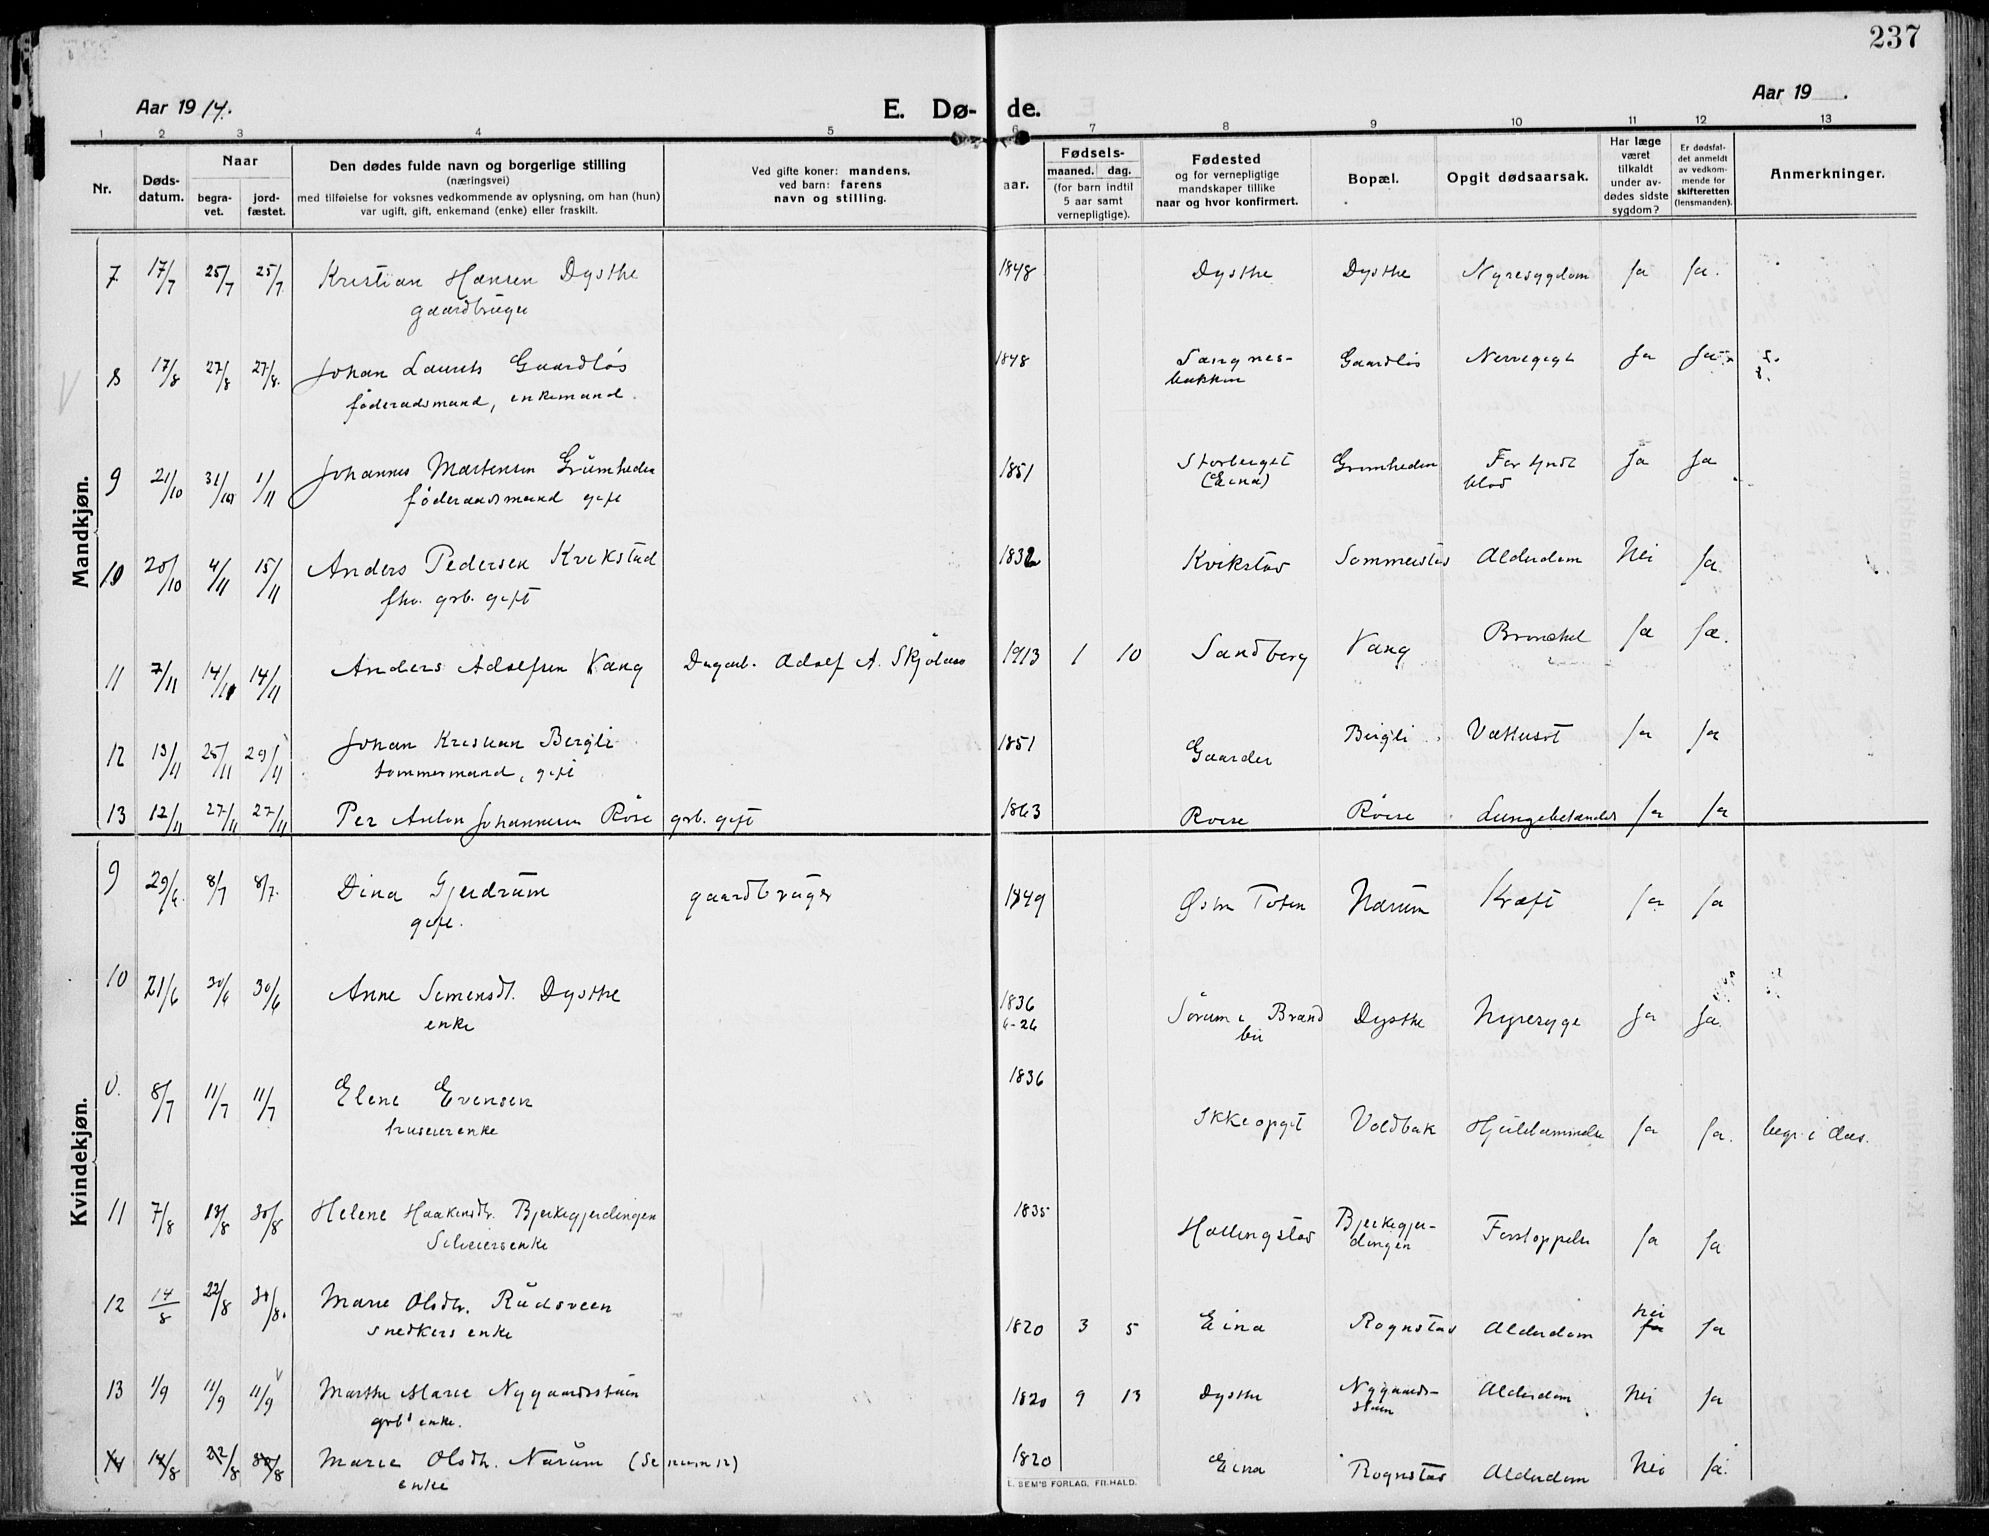 237
Aar 1914.
E. Dø- de.
Aar 19 .
1 2 3 4 5 6 7 8 9 10 11 12 13
Nr.
Døds-
datum.
Naar
begra-
vet.
jord-
fæstet.
Den dødes fulde navn og borgerlige stilling
(næringsvei)
med tilføielse for voksnes vedkommende av oplysning, om han (hun)
var ugift, gift, enkemand (enke) eller fraskilt.
Ved gifte koner: mandens,
ved barn: farens
navn og stilling.
aar.
Fødsels-
maaned. dag.
(for barn indtil
5 aar samt
vernepligtige).
Fødested
og for vernepligtige
mandskaper tillike
naar og hvor konfirmert.
Bopæl.
Opgit dødsaarsak.
Har læge
været
tilkaldt
under av-
dødes sidste
sygdom?
Er dødsfal-
det anmeldt
av vedkom-
mende for
skifteretten
(lensmanden).
Anmerkninger.
Mandkjøn.
7 17/7 25/7 25/7 Kristian Hansen Dysthe 1848 Dysthe Dysthe Nyresygdom Ja Ja.
gaardbruger
8 17/8 27/8 27/8. Johan Laurits Gaardløs 1848 Sangnes- Gaardløs Nervegigt Ja Ja
bakken
føderaadsmand, enkemand.
9 21/10 31/10 1/11 Johannes Martensen Grümheden 1851 Storberget Grümheden For tyndt Ja Ja
(Eina) blod
føderaadsmand gift
10 20/10 4/11 15/11 Anders Pedersen Kvikstad 1832 Kvikstad Sommerstad Alderdom Nei Ja
fhv. grb. gift
11 7/11 14/11 14/11 Anders Adolfsen Vang Dagarb. Adolf A. Skjølaas 1913 1 10 Sandberg Vang Ja Ja.
12 13/11 25/11 29/11 Johan Kristian Bergli 1851 Gaarder Bergli Vattersot Ja Ja
tommermand, gift
13 12/11 27/11 27/11 Per Anton Johannesen Röise grb. gift 1863 Roise Röise Lungebetændelse Ja Ja
Kvindekjøn.
9 29/6 8/7 8/7. Dina Gjerdrüm gaardbrüger 1849 Østre Toten Narüm Kræft Ja Ja
gift.
10 21/6 30/6 30/6 Anne Simensdt. Dysthe 1836 Sørum i Brand Dysthe Nyresyge Ja Ja.
6-26 bu
enke
U. 8/7 11/7 11/7 Elene Evensen 1836 Ikke opgit Voldbak Ja Ja. begr. i
huseierenke
11 7/8 13/8 30/8 Helene Haakensdtr. Bjerkegjerdingen 1835 Hallingstad Bjerkegjer- Forstoppelse Ja Ja
dingen
Selveiersenke
12 14/8 22/8 30/8. Marie Olsdtr. Rüdsveen 1820 3 5 Eina Rognstad Alderdom Nei Ja
Ja
snedkers enke
13 1/9 11/9 11/9 Marthe Marie Nygaardsstuen 1820 9 13 Dysthe Nygaards- Alderdom Nei Ja
stuen
grb. enke.
14 14/8 22/8 30/8 Marie Olsdtr. Narüm (Se num 12) 1820 Eina Rognstad Alderdom Nei Ja.
enke
L. SEM'S FORLAG, FR.HALD.